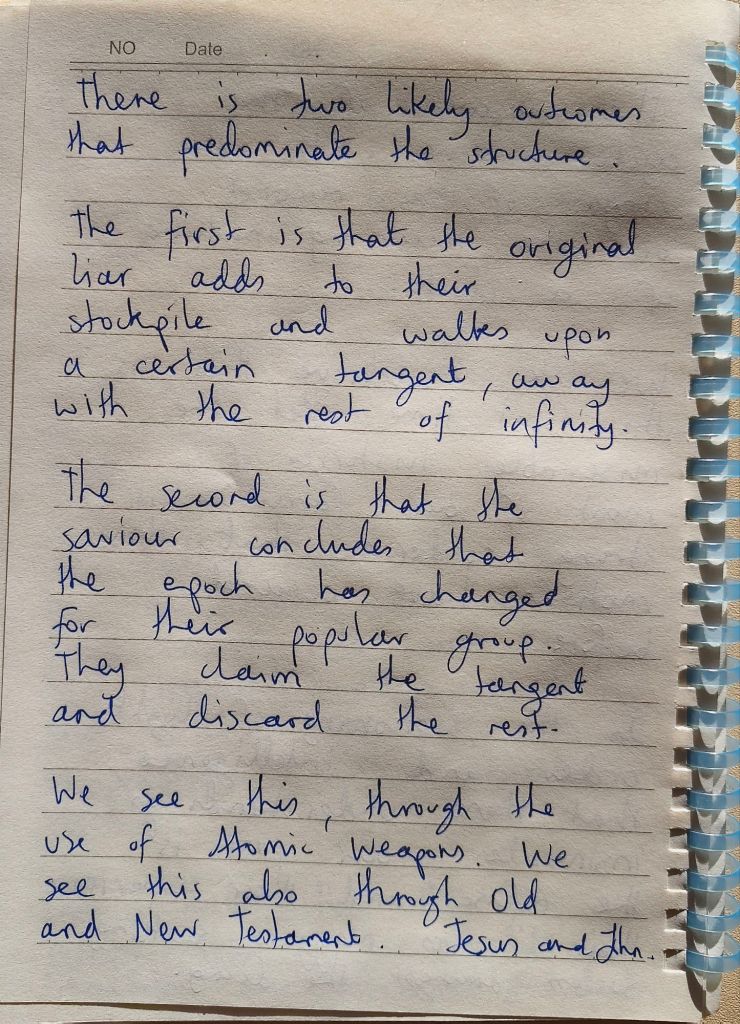 NO Date
There is two likely outcomes
that predominate the structure.
The first is that the original
liar adds to their
stockpile and walks upon
a certain tangent, away
with the rest of infinity.
The second is that the
saviour concludes that
the epoch has changed
for their popular group.
They claim the tangent
and discard the rest.
We see this, through the
use of Atomic Weapons. We
see this also through Old
and New Testament. Jesus and Jhn.